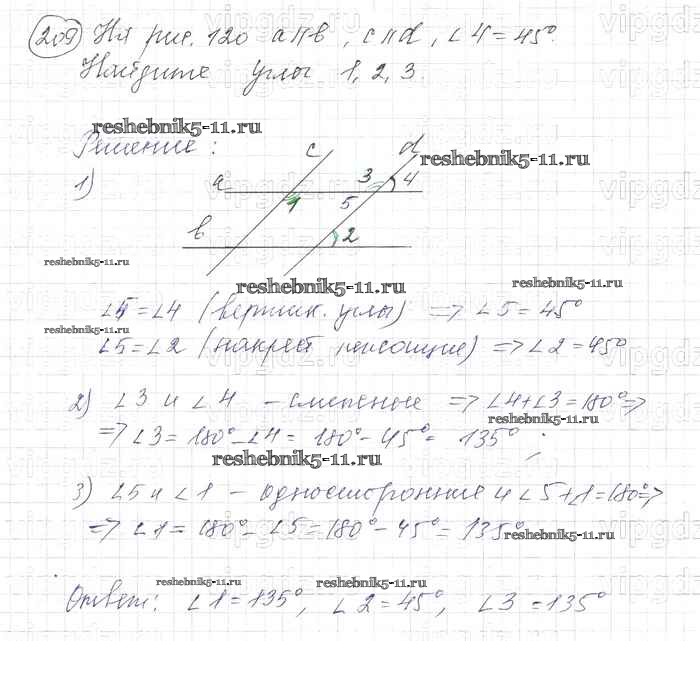 209 На рис. 120 a∥b, c∥d, ∠4=45°.
Найдите углы 1, 2, 3.
reshebnik5-11.ru
Решение:
reshebnik5-11.ru
1)
c
d
a
3
4
1
5
b
2
reshebnik5-11.ru
reshebnik5-11.ru
reshebnik5-11.ru
∠5=∠4 (вертик. углы) => ∠5=45°
reshebnik5-11.ru
∠5=∠2 (накрест лежащие) => ∠2=45°
2) ∠3 и ∠4 - смежные => ∠4+∠3=180° =>
reshebnik5-11.ru
=> ∠3=180°-∠4= 180°-45°= 135°;
reshebnik5-11.ru
3) ∠5 и ∠1 - односторонние и ∠5+∠1=180° =>
=> ∠1=180°-∠5=180°-45°=135°
reshebnik5-11.ru
reshebnik5-11.ru
reshebnik5-11.ru
Ответ: ∠1=135°, ∠2=45°, ∠3=135°
vipgdz.ru